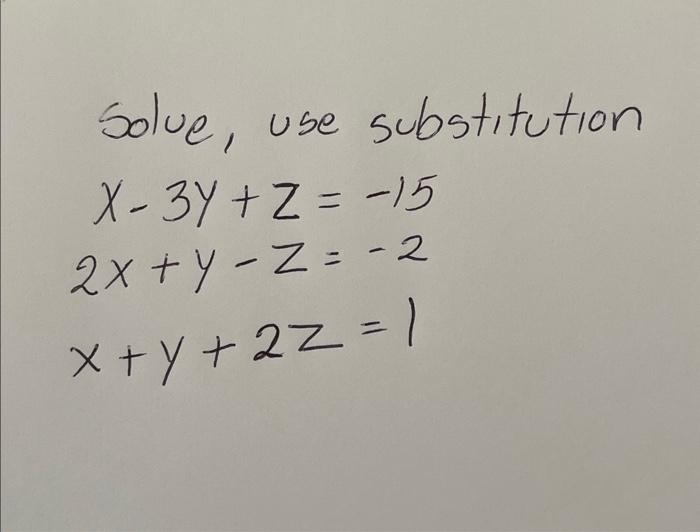 Solve, use substitution
X - 3Y + Z = -15
2x + y - Z = -2
x + y + 2Z = 1